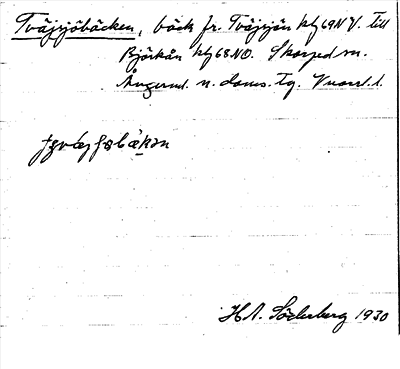 Tväjsjöbäcken, bäck fr. Tväjsjön kbl 69NV. till
Björkån kbl 68NO. Skorped sn.
Ångerml. n. doms. Tg. V.norrl. l.
H.A. Söderberg 1930